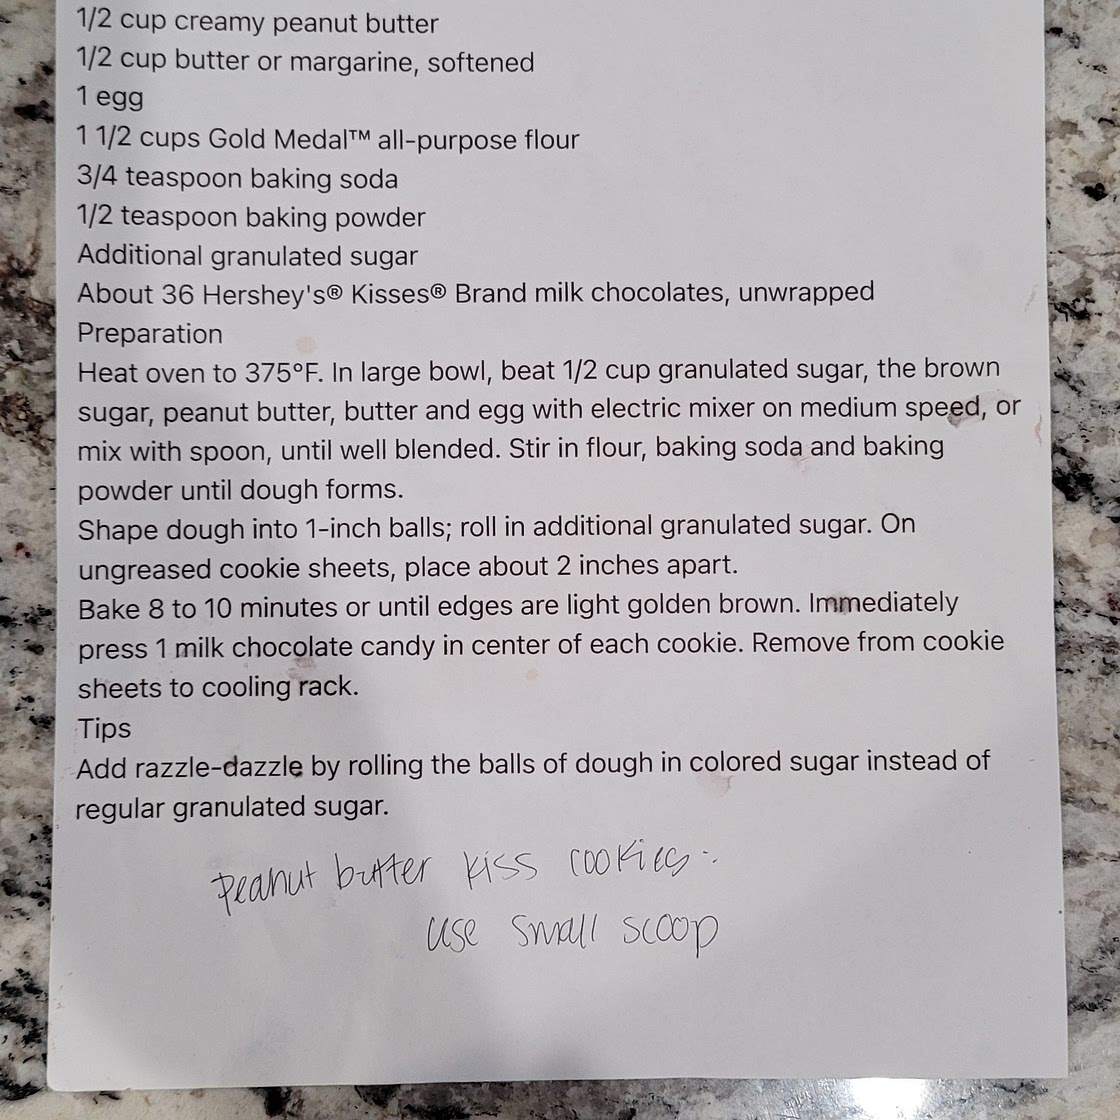 1/2 cup creamy peanut butter
1/2 cup butter or margarine, softened
1 egg
1 1/2 cups Gold Medal™ all-purpose flour
3/4 teaspoon baking soda
1/2 teaspoon baking powder
Additional granulated sugar
About 36 Hershey's® Kisses® Brand milk chocolates, unwrapped
Preparation
Heat oven to 375°F. In large bowl, beat 1/2 cup granulated sugar, the brown
sugar, peanut butter, butter and egg with electric mixer on medium speed, or
mix with spoon, until well blended. Stir in flour, baking soda and baking
powder until dough forms.
Shape dough into 1-inch balls; roll in additional granulated sugar. On
ungreased cookie sheets, place about 2 inches apart.
Bake 8 to 10 minutes or until edges are light golden brown. Immediately
press 1 milk chocolate candy in center of each cookie. Remove from cookie
sheets to cooling rack.
Tips
Add razzle-dazzle by rolling the balls of dough in colored sugar instead of
regular granulated sugar.
Peanut butter kiss cookies:
use small scoop